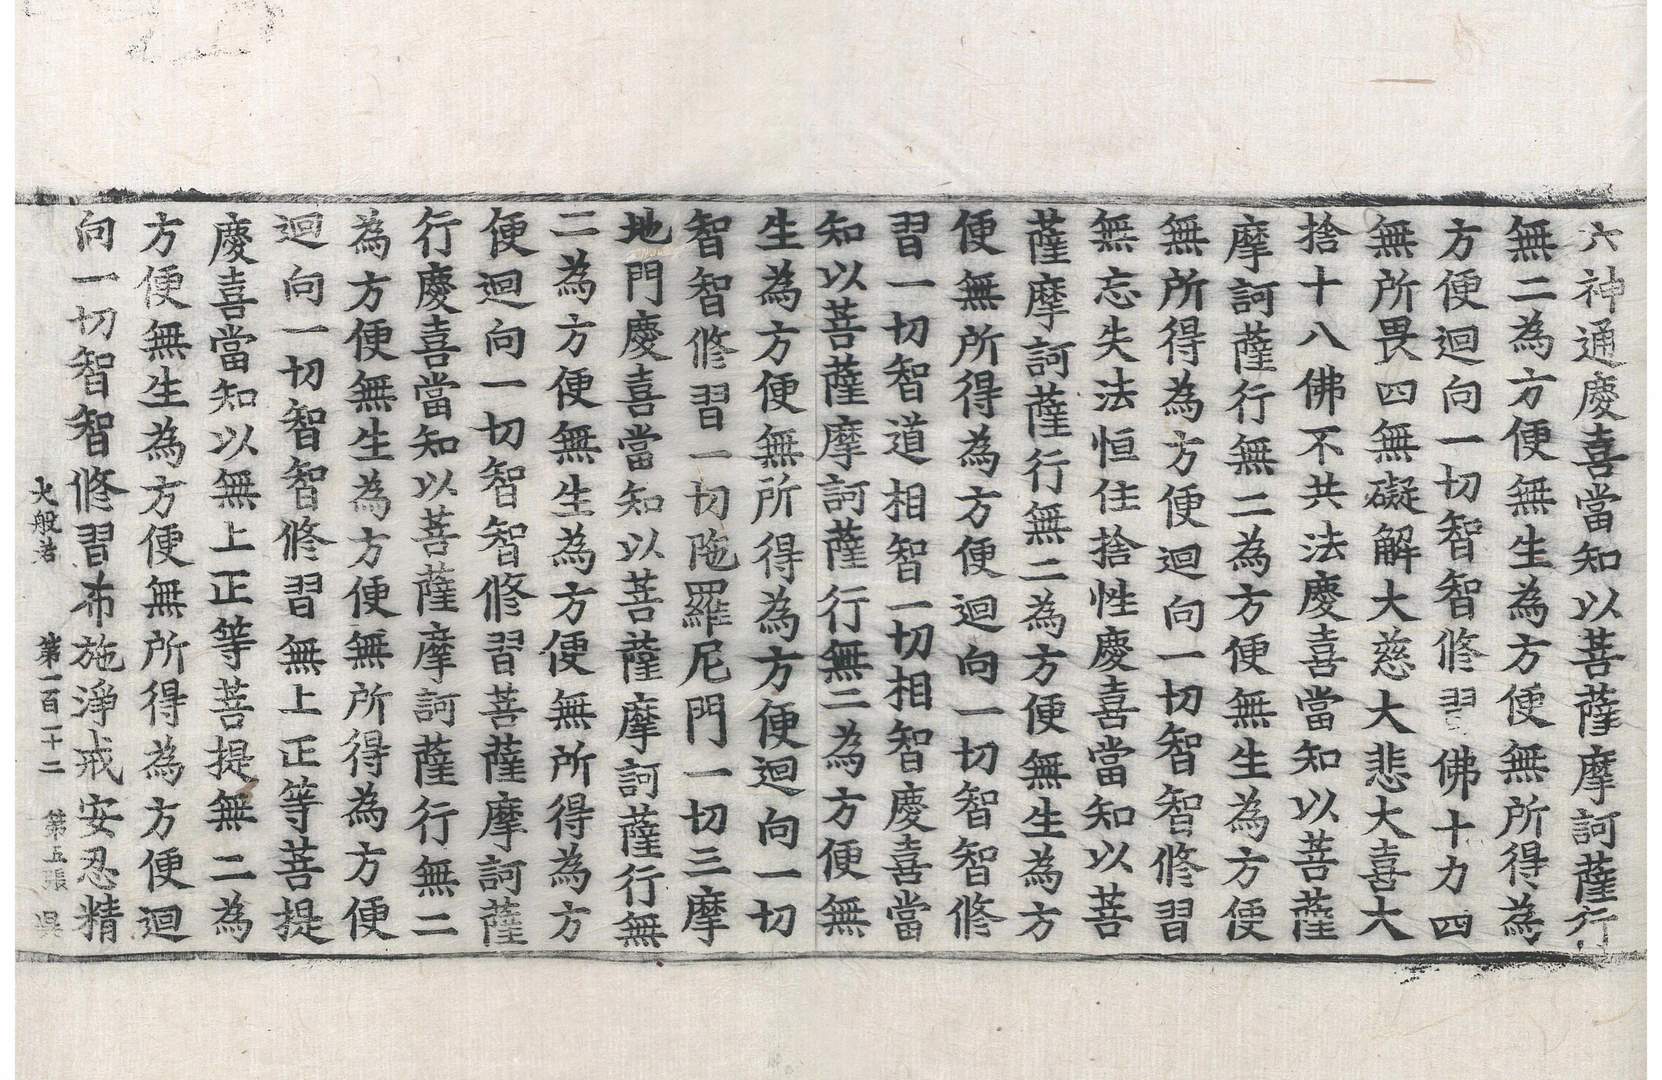 六神通慶喜當知以菩薩摩訶薩行
無二為方便無生為方便無所得為
方便迴向一切智智修習佛十力四
無所畏四無礙解大慈大悲大喜大
捨十八佛不共法慶喜當知以菩薩
摩訶薩行無二為方便無生為方便
無所得為方便迴向一切智智修習
無忘失法恒住捨性慶喜當知以菩
薩摩訶薩行無二為方便無生為方
便無所得為方便迴向一切智智修
習一切智道相智一切相智慶喜當
知以菩薩摩訶薩行無二為方便無
生為方便無所得為方便迴向一切
智智修習一切陁羅尼門一切三摩
地門慶喜當知以菩薩摩訶薩行無
二為方便無生為方便無所得為方
便迴向一切智智修習菩薩摩訶薩
行慶喜當知以菩薩摩訶薩行無二
為方便無生為方便無所得為方便
迴向一切智智修習無上正等菩提
慶喜當知以無上正等菩提無二為
方便無生為方便無所得為方便迴
向一切智智修習布施淨戒安忍精
大般若 第一百二十二 第五張 㫷